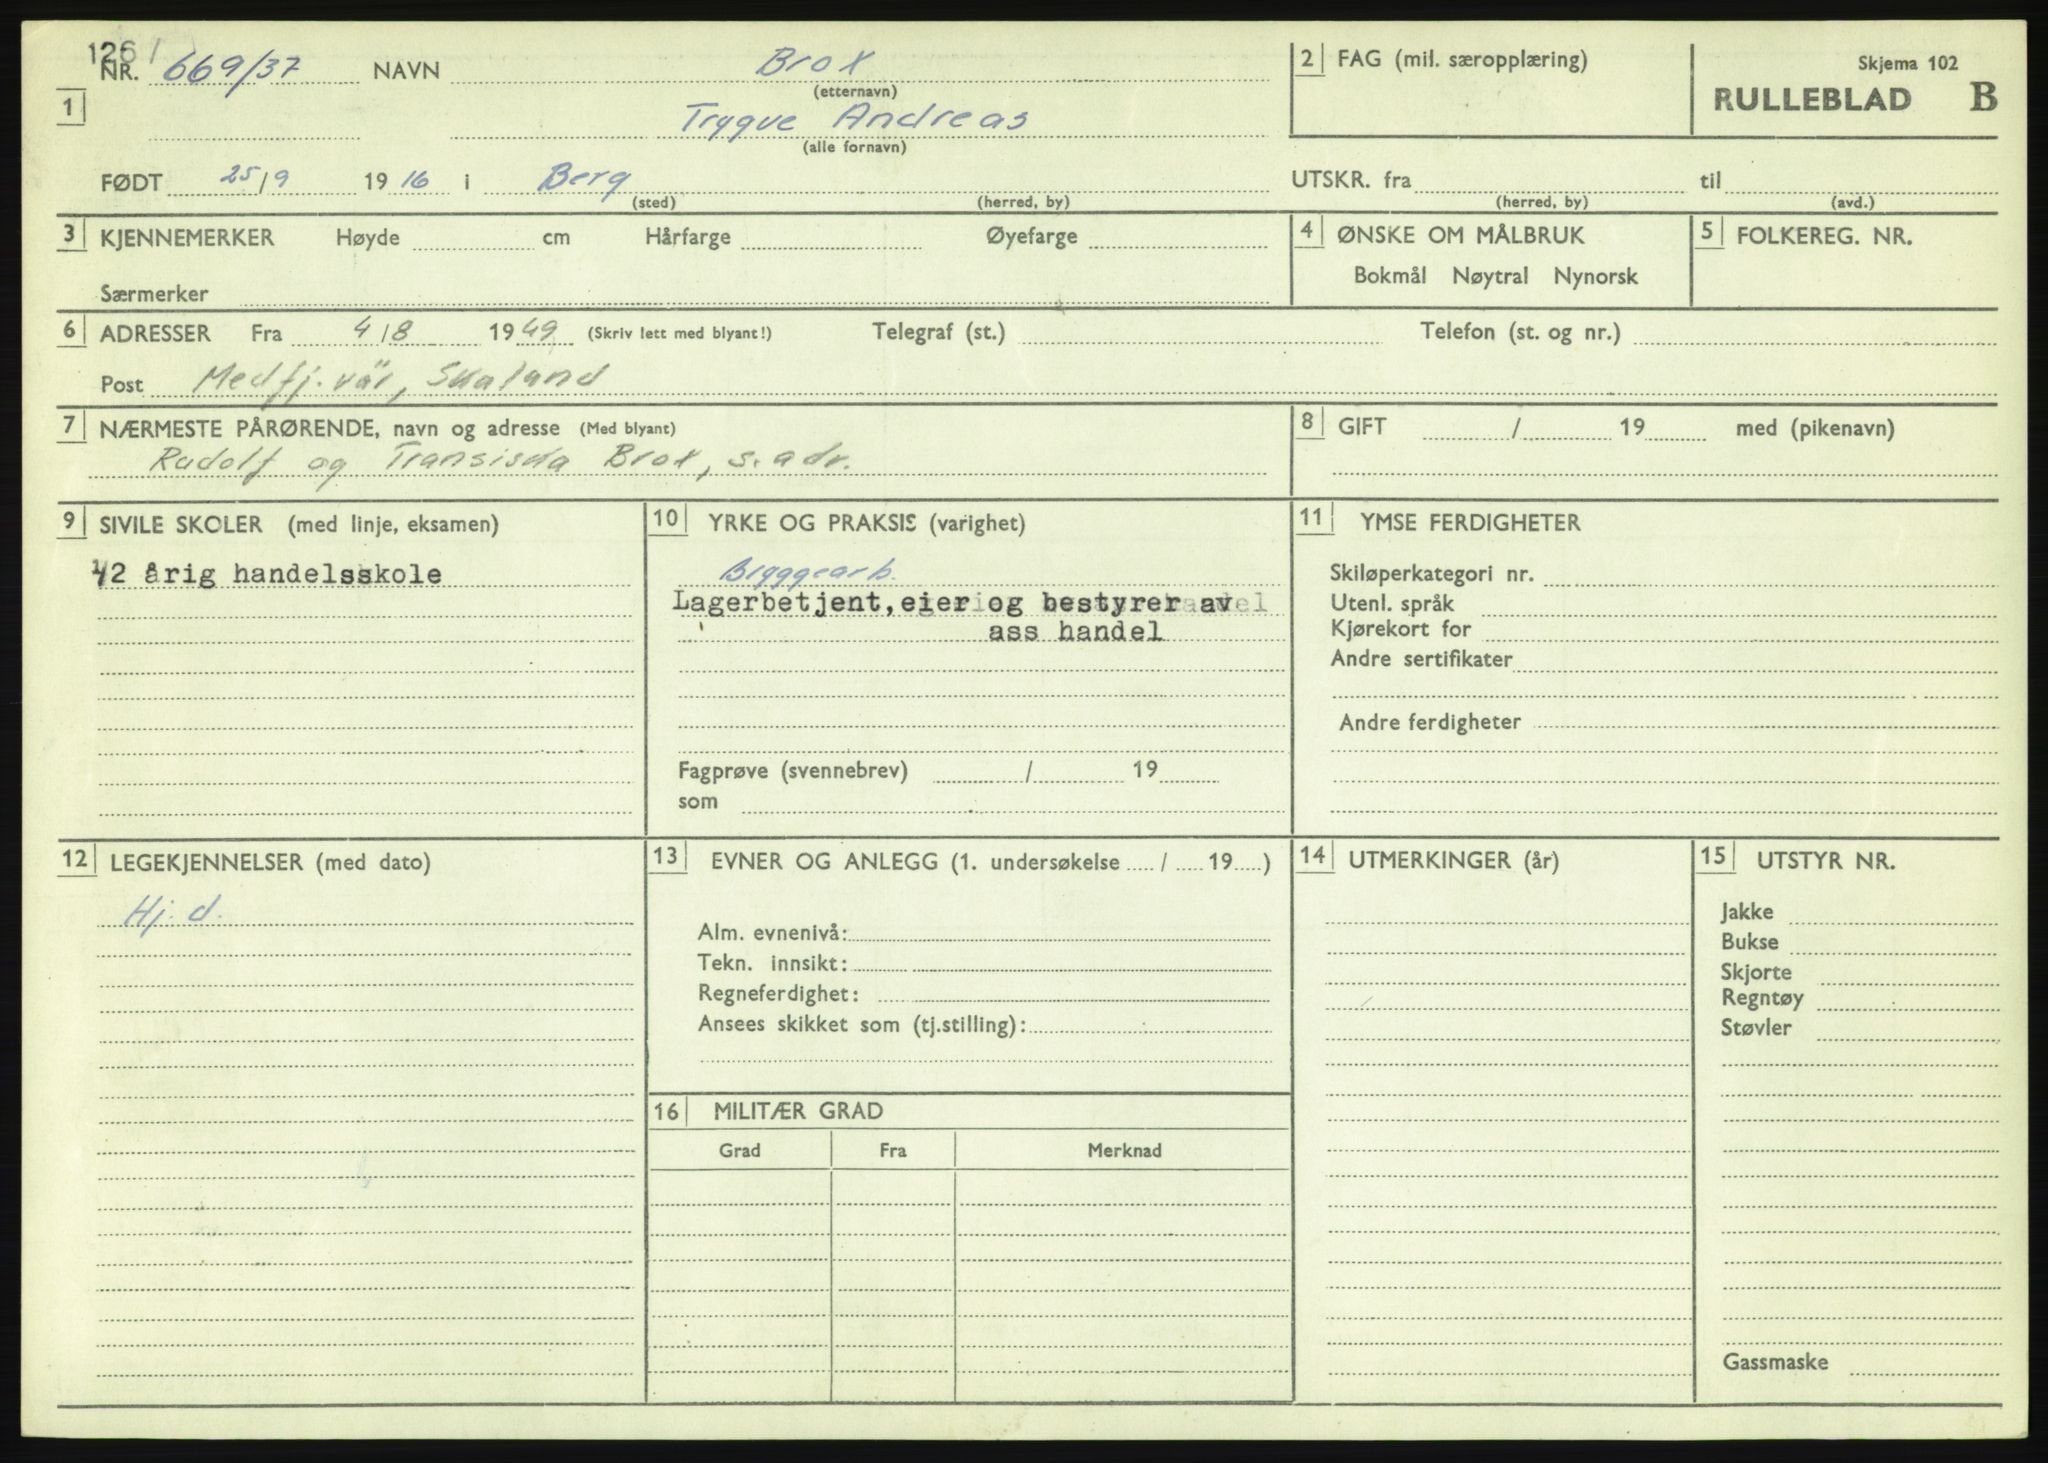 1261
NR. 669/37 NAVN Brox
(etternavn)
2 FAG (mil. særopplæring)
Skjema 102
RULLEBLAD B
1
Trygve Andreas
(alle fornavn)
FØDT 25/9 1916 i Berg
(sted) (herred, by)
UTSKR. fra til
(herred, by) (avd.)
3 KJENNEMERKER Høyde cm Hårfarge Øyefarge
Særmerker
4 ØNSKE OM MÅLBRUK
Bokmål Nøytral Nynorsk
5 FOLKEREG. NR.
6 ADRESSER Fra 4/8 1949 (Skriv lett med blyant!) Telegraf (st.) Telefon (st. og nr.)
Post Medfj.vär, Skaland
7 NÆRMESTE PÅRØRENDE, navn og adresse (Med blyant)
Rudolf og Transiska Brox, s. adr.
8 GIFT / 19 med (pikenavn)
9 SIVILE SKOLER (med linje, eksamen)
1/2 årig handelsskole
10 YRKE OG PRAKSIS (varighet)
Bryggearb.
Lagerbetjent, eier og bestyrer av
ass handel
Fagprøve (svennebrev) / 19
som
11 YMSE FERDIGHETER
Skiløperkategori nr.
Utenl. språk
Kjørekort for
Andre sertifikater
Andre ferdigheter
12 LEGEKJENNELSER (med dato)
Hj. d.
13 EVNER OG ANLEGG (1. undersøkelse ..... / ..... 19..... )
Alm. evnenivå:
Tekn. innsikt:
Regneferdighet:
Ansees skikket som (tj.stilling):
16 MILITÆR GRAD
Grad Fra Merknad
14 UTMERKINGER (år)
15 UTSTYR NR.
Jakke
Bukse
Skjorte
Regntøy
Støvler
Gassmaske